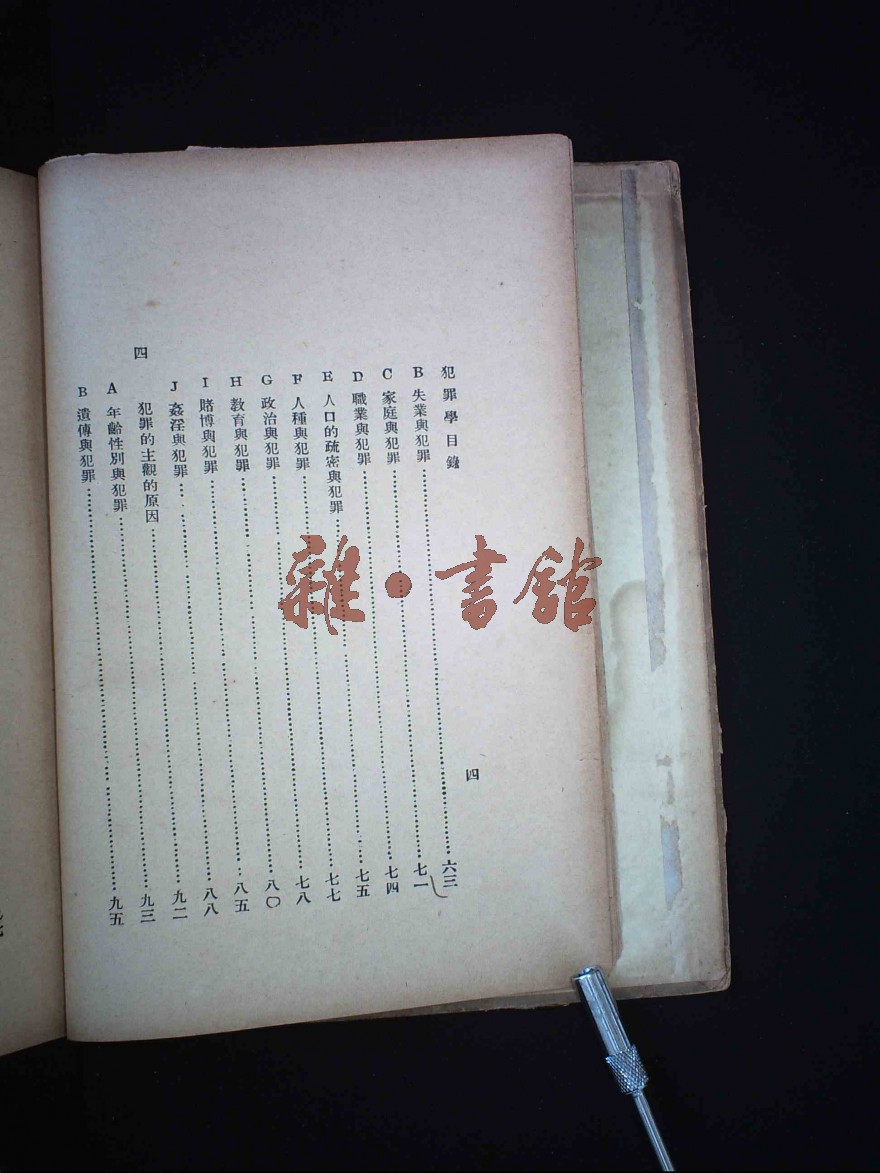 犯罪學目錄
四
B 失業與犯罪……六三
C 家庭與犯罪……七一
D 職業與犯罪……七四
E 人口的疏密與犯罪……七五
F 人種與犯罪……七七
G 政治與犯罪……七八
H 教育與犯罪……八〇
I 賭博與犯罪……八五
J 姦淫與犯罪……八八
四 犯罪的主觀的原因……九二
A 年齡性別與犯罪……九三
B 遺傳與犯罪……九五
雜•書館